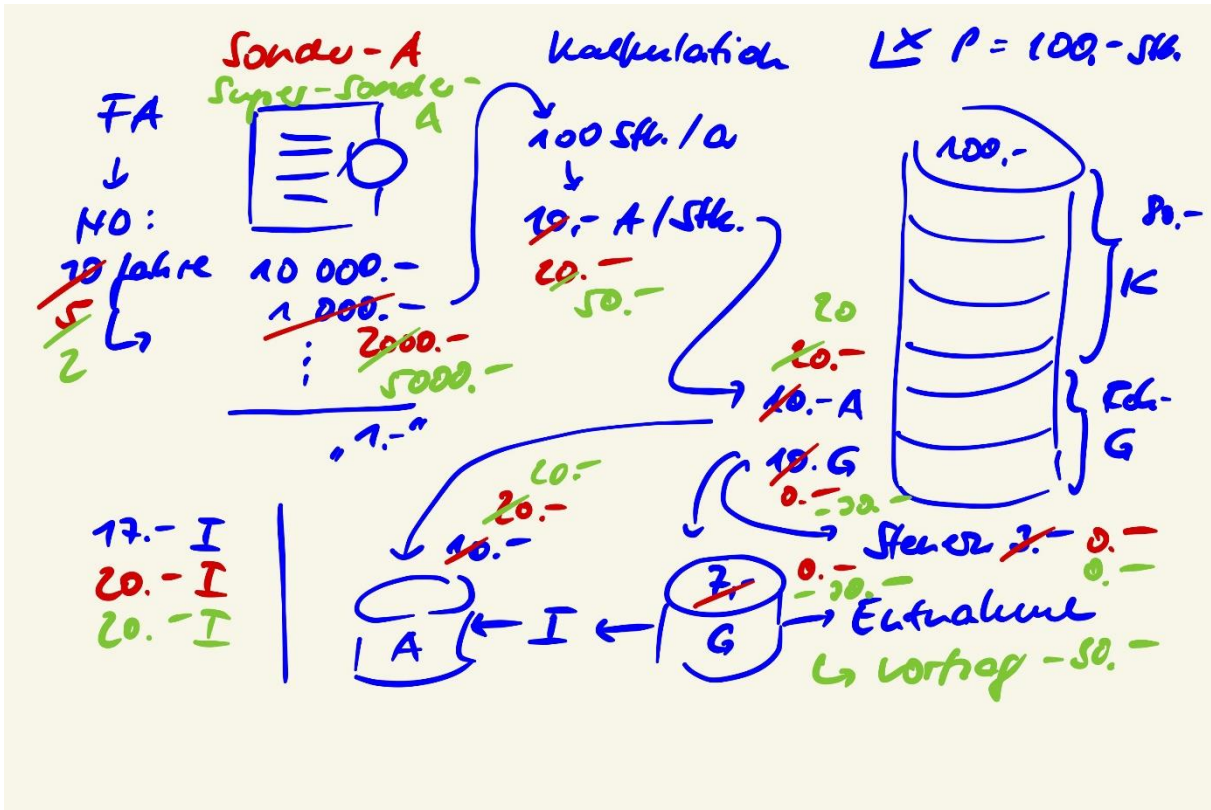 Sonder-A
Super-Sonder-
A
Kalkulation
P = 100,- Stk.
FA
ND:
10 Jahre
5
2
10 000.-
1 000.-
2000.-
5000.-
"1.-"
100 Stk./a
10,- A/Stk.
20.-
50.-
100,-
80.-
K
20
20.-
10.- A
10. G
0.-
G
Steuern 3.- 0.-
0.-
20.-
20.-
10.-
17.- I
20.- I
20.- I
A
I
7,-
G
0.-
Entnahme
Vortrag